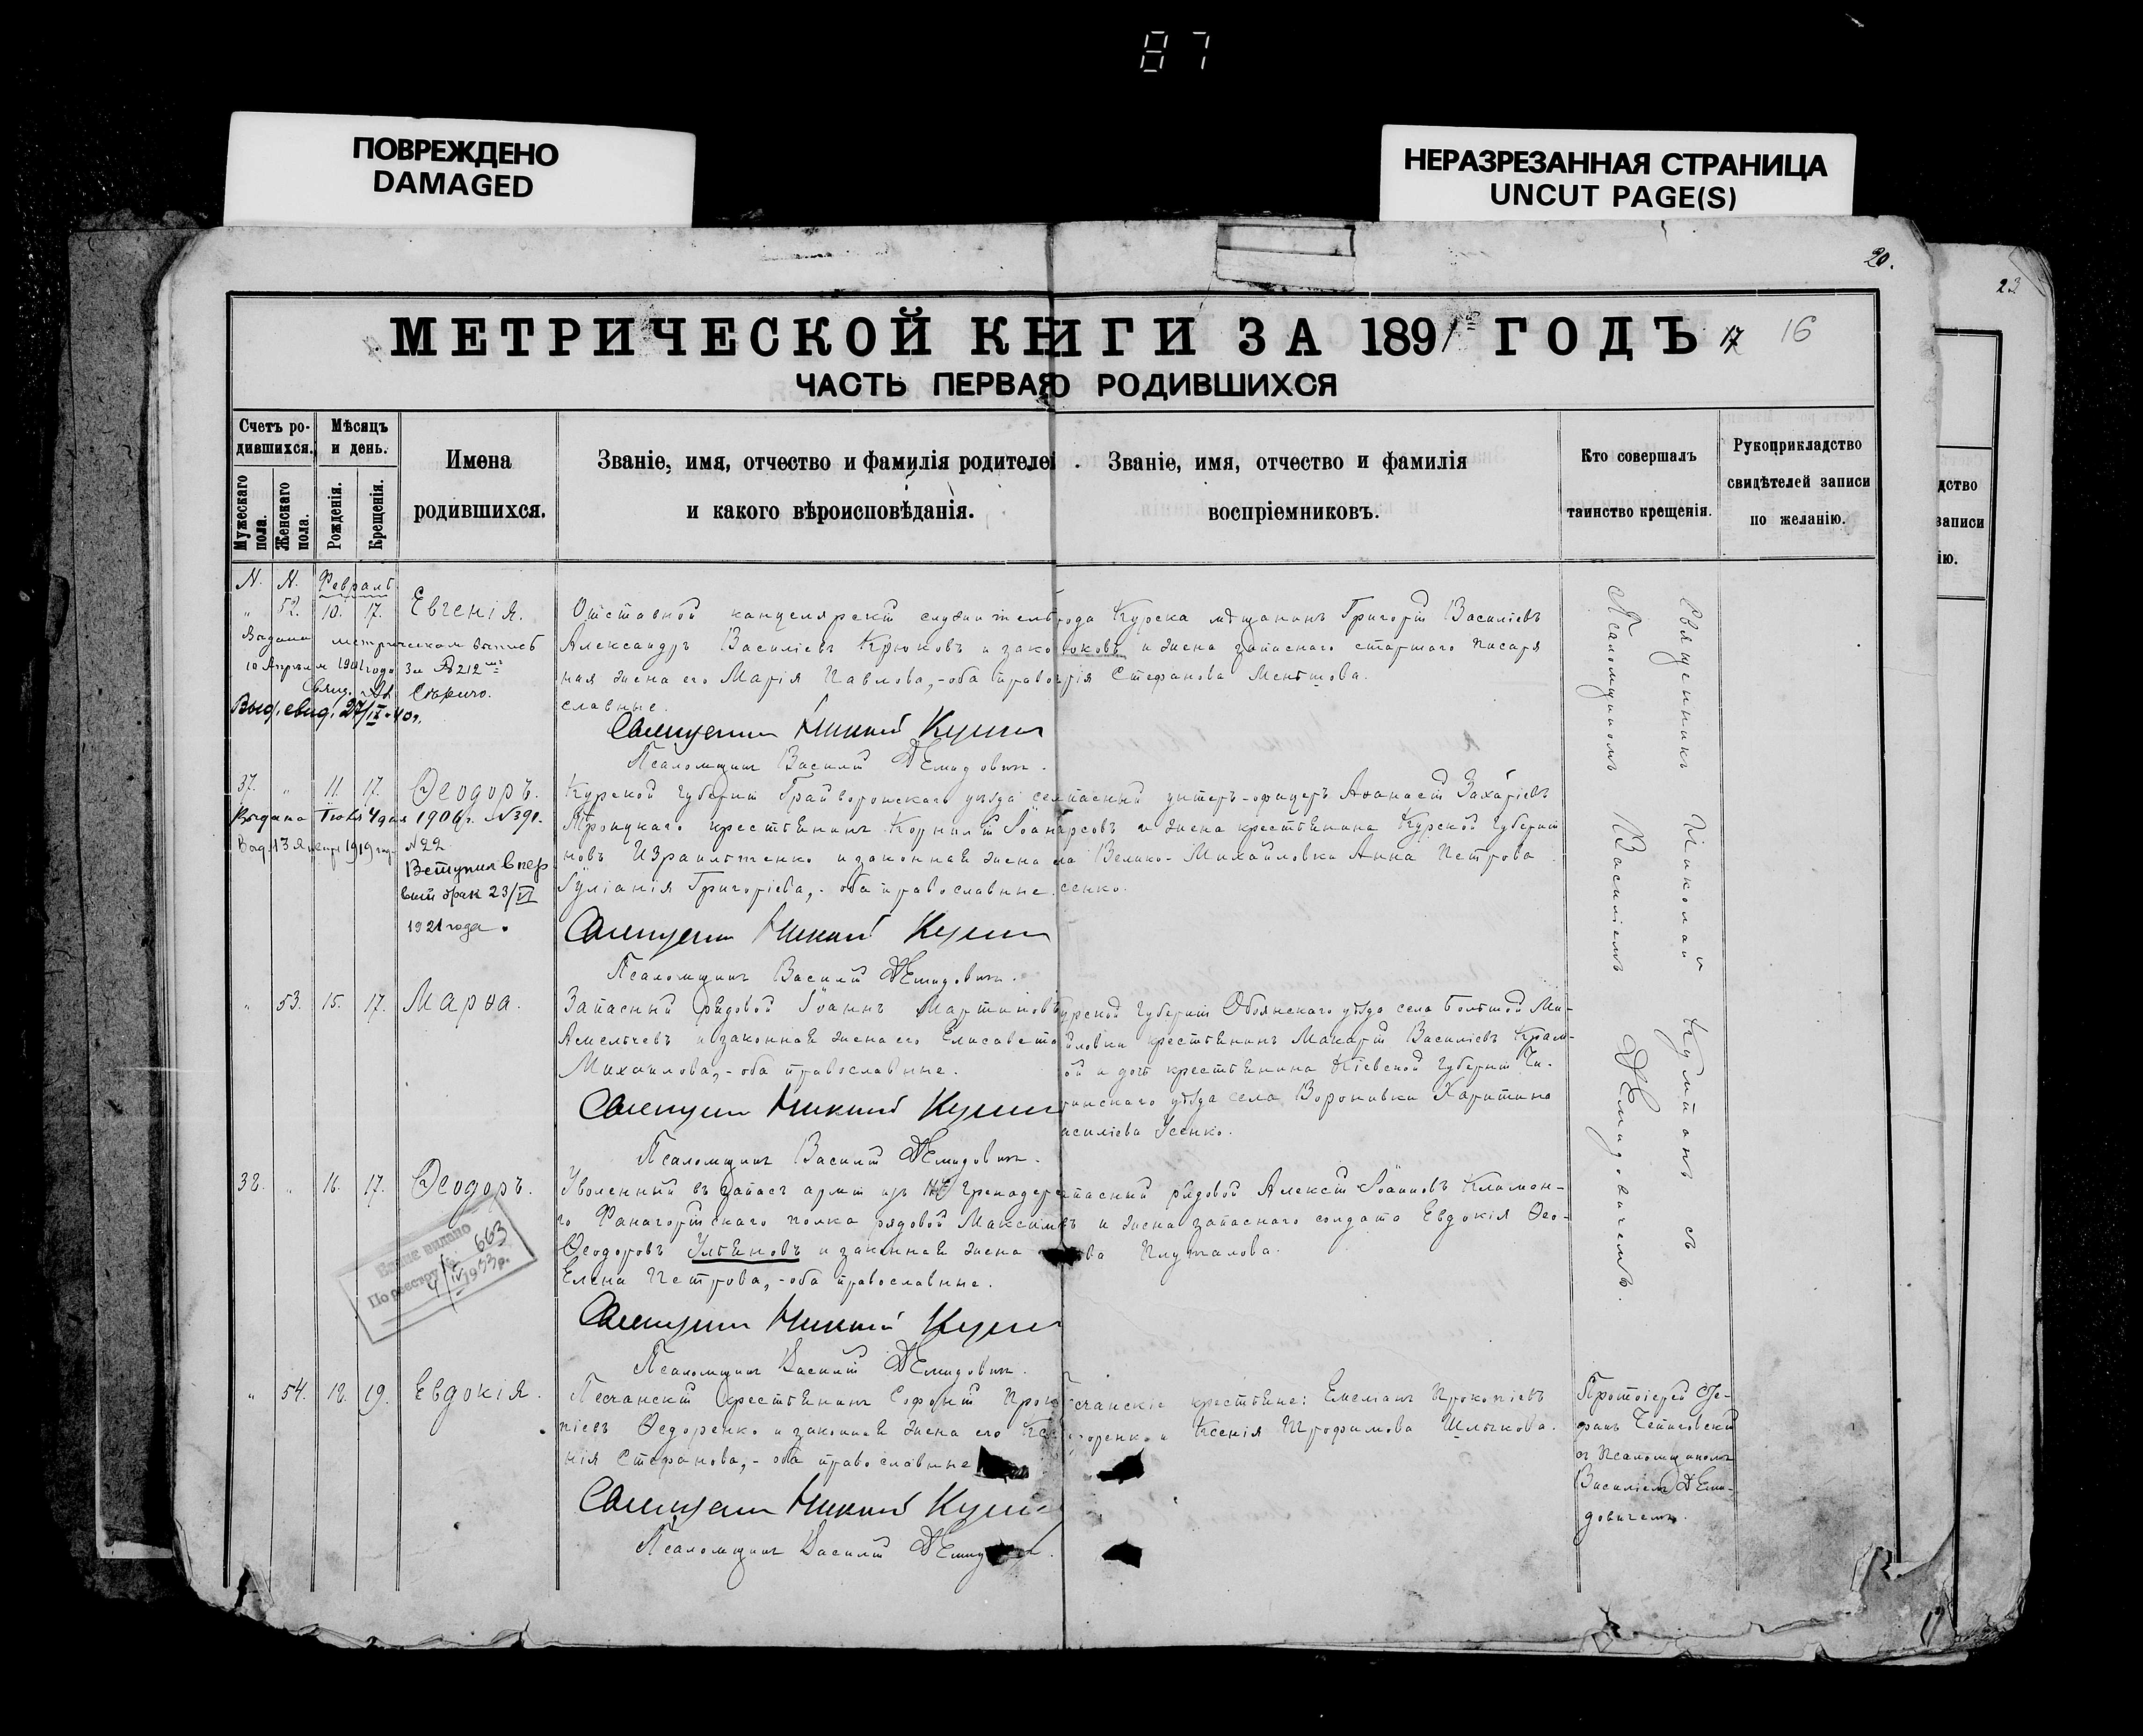 87
ПОВРЕЖДЕНО
DAMAGED
НЕРАЗРЕЗАННАЯ СТРАНИЦА
UNCUT PAGE(S)
20.
23
МЕТРИЧЕСКОЙ КНИГИ ЗА 1891 ГОДЪ 17 16
ЧАСТЬ ПЕРВАЯ О РОДИВШИХСЯ
Счетъ ро-
дившихся.
Мужескаго пола.
Женскаго пола.
Мѣсяцъ
и день.
Рожденія.
Крещенія.
Имена
родившихся.
Званіе, имя, отчество и фамилія родителей
и какого вѣроисповѣданія.
Званіе, имя, отчество и фамилія
воспріемниковъ.
Кто совершалъ
таинство крещенія.
Рукоприкладство
свидѣтелей записи
по желанію.
дство
записи
ію.
N. N. Февраль
" 52. 10. 17. Евгенія.
Выдана метрическая выпись
10 Апрѣля 1901 года за № 212
Выд. свид. 27/IX-40г.
Отставной канцелярскій служитель
Александръ Василіевъ Крюковъ и закон
ная жена его Марія Павлова,-оба право
славные.
Священникъ Николай
Псаломщикъ Василій Демидовичъ.
рода Курска мѣщанинъ Григорій Василіевъ
рюковъ и жена запаснаго старшаго писаря
рія Стефанова Меньшова.
37. " 11. 17. Ѳеодоръ.
Выдана Іюля 4 дня 1906г. №390.
Выд. 13 Января 1919 год. №22
Вступил в пер
вый брак 23/VI
1921 года.
Курской губерніи Грайворонскаго уѣзда сел
Троицкаго крестьянинъ Корнилій Іоан
новъ Израильтенко и законная жена
Іуліанія Григоріева,-оба православные.
Священникъ Николай
Псаломщикъ Василій Демидовичъ.
пасный унтеръ-офицеръ Аѳанасій Захаріевъ
и жена крестьянина Курской губерніи
ла Велико-Михайловки Анна Петрова
сенко.
" 53. 15. 17. Марѳа.
Запасный рядовой Іоаннъ Мартиновъ
Амельчевъ и законная жена его Елисавета
Михаилова,-оба православные.
Священникъ Николай
Псаломщикъ Василій Демидовичъ.
урской губерніи Обоянскаго уѣзда села Большой Ми-
йловки крестьянинъ Макарій Василіевъ Крам-
ой и дочь крестьянина Кіевской губерніи Чи-
ринскаго уѣзда села Вороновки Харитина
асиліева Усенко.
38. " 16. 17. Ѳеодоръ.
По реестру № 663
4/IV 1933 р.
Уволенный въ запасъ арміи изъ Гренадерс
го Фанагорійскаго полка рядовой Максим
Ѳеодоровъ Ульяновъ и законная жена
Елена Петрова,-оба православные.
Священникъ Николай
Псаломщикъ Василій Демидовичъ.
апасный рядовой Алексій Іоанновъ Климен-
и жена запаснаго солдата Евдокія Ѳео-
ва Плуталова.
" 54. 18. 19. Евдокія.
Песчанскій крестьянинъ Софоній Прок
піевъ Ѳедоренко и законная жена его Ксе
нія Стефанова,-оба православные
Священникъ Николай
Псаломщикъ Василій
есчанскіе крестьяне: Емеліанъ Прокопіевъ
доренко и Ксенія Трофимова Шлыкова.
Священникъ Николай съ
Псаломщикомъ Василіемъ Демидовичемъ.
Протоіерей Сте-
фанъ
съ Псаломщикомъ
Василіемъ Деми-
довичемъ.